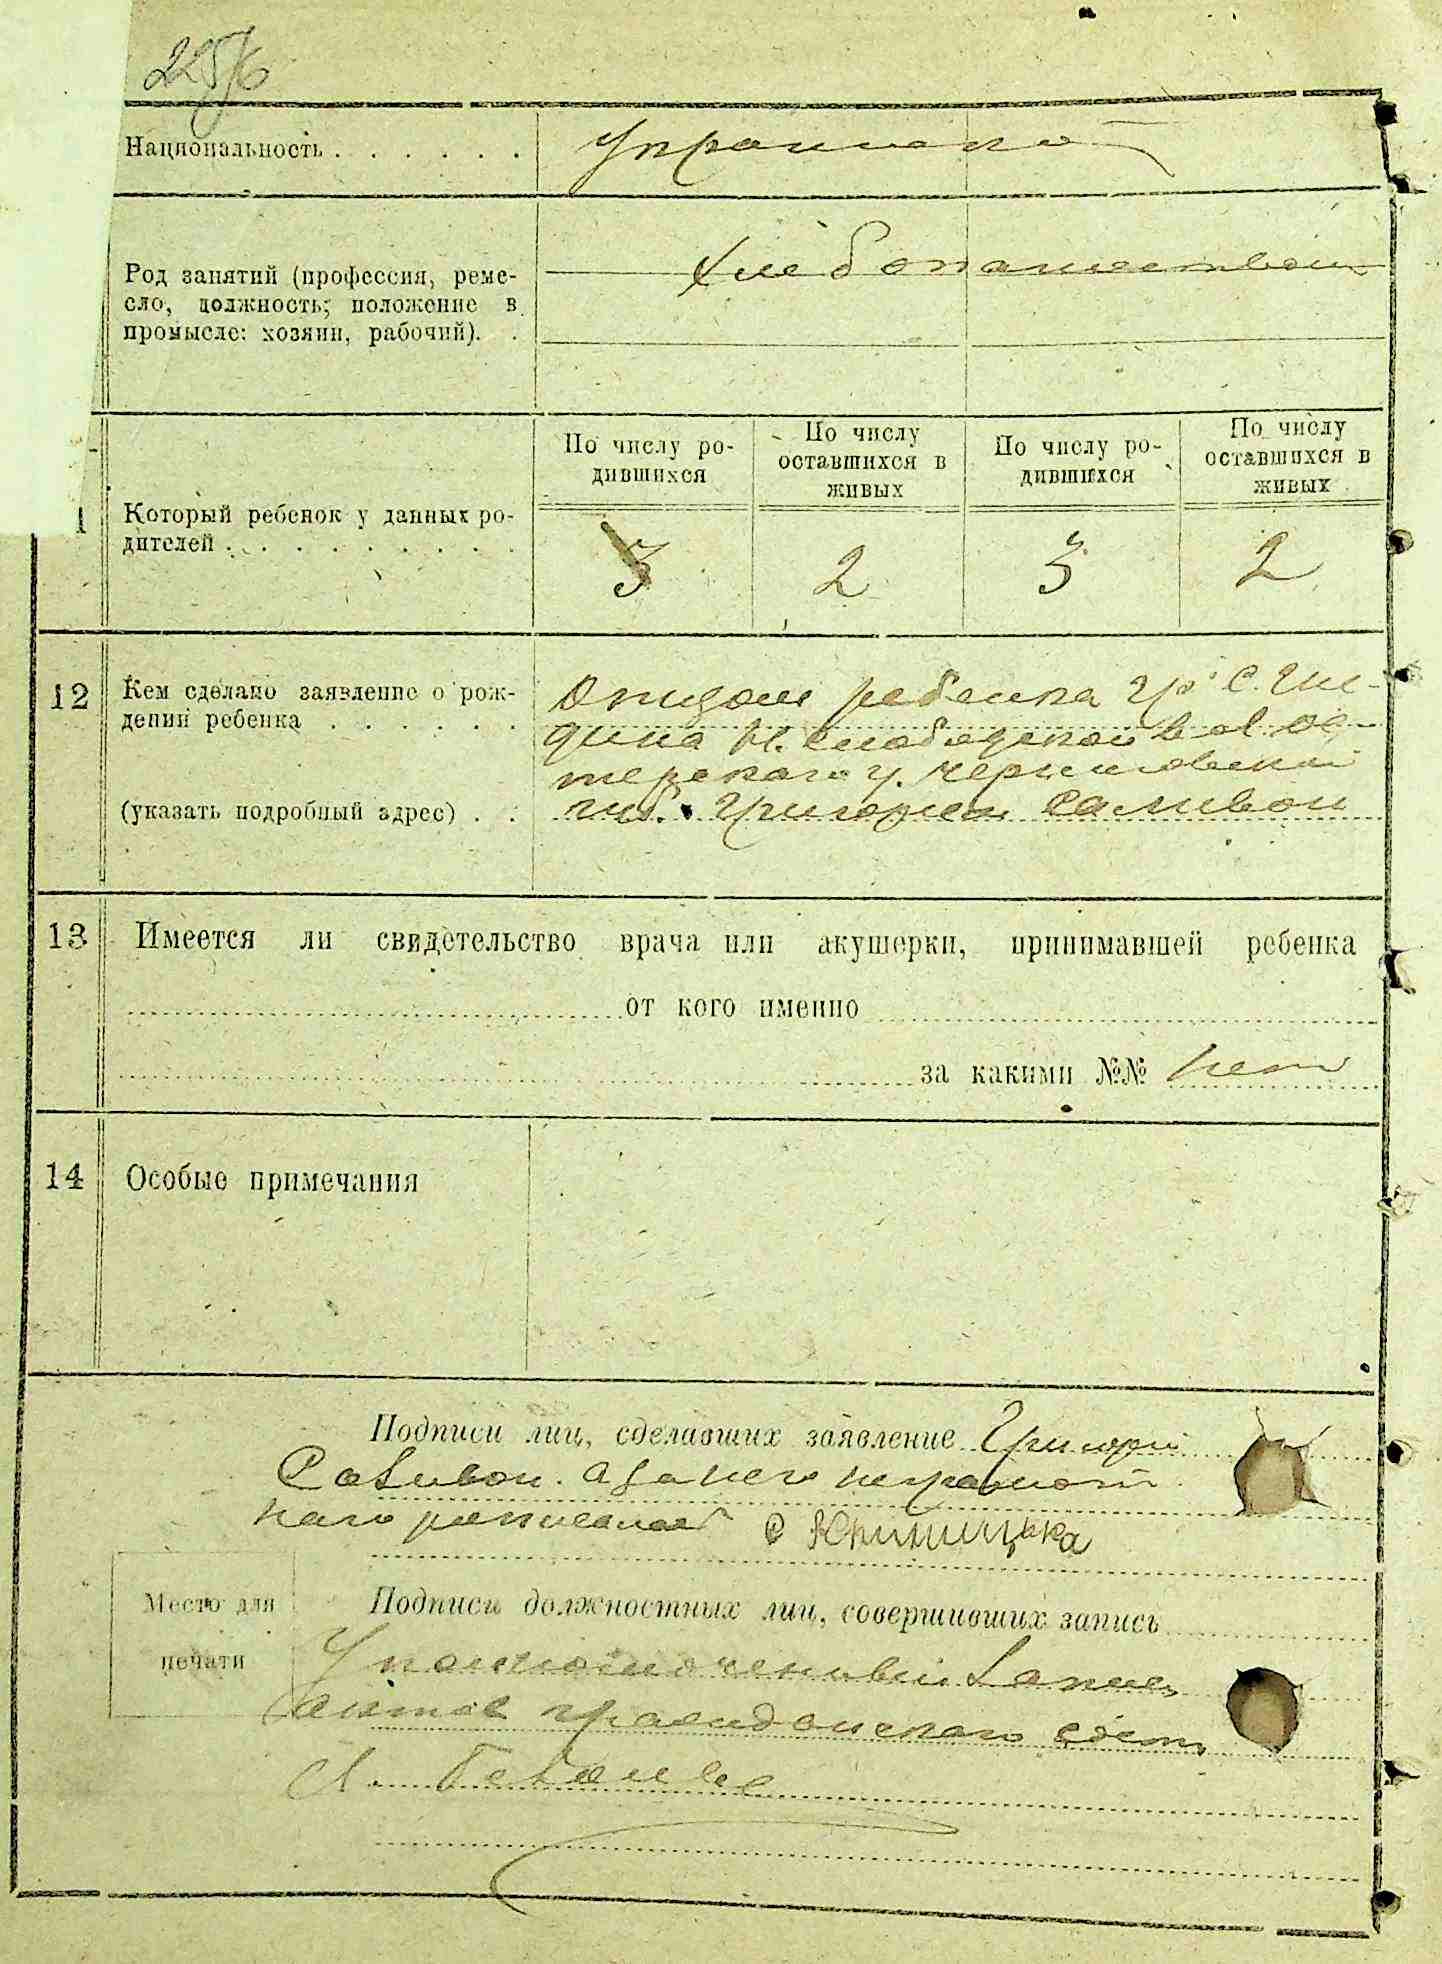 225/6
Национальность . . . . . .
Украинско
Род занятий (профессия, реме-
сло, должность; положение в
промысле: хозяин, рабочий). .
Хлебопашеством
По числу ро-
дившихся
По числу
оставшихся в
живых
По числу ро-
дившихся
По числу
оставшихся в
живых
1
Который ребенок у данных ро-
дителей . . . . . . . . .
3 2 3 2
12
Кем сделано заявление о рож-
дении ребенка . . . . . .
(указать подробный адрес) . .
Отцом ребенка гр. с. Гне-
дина Н. Слободской вол. Ос-
терского у. Черниговской
губ. Григорием Саливон
13
Имеется ли свидетельство врача или акушерки, принимавшей ребенка
от кого именно
за какими №№ нет
14
Особые примечания
Подписи лиц, сделавших заявление Григори
Саливон. А за него неграмот
ного росписалась С Криницька
Место для
печати
Подписи должностных лиц, совершивших запись
Уполномоченный Запис
актов гражданского сост
А.